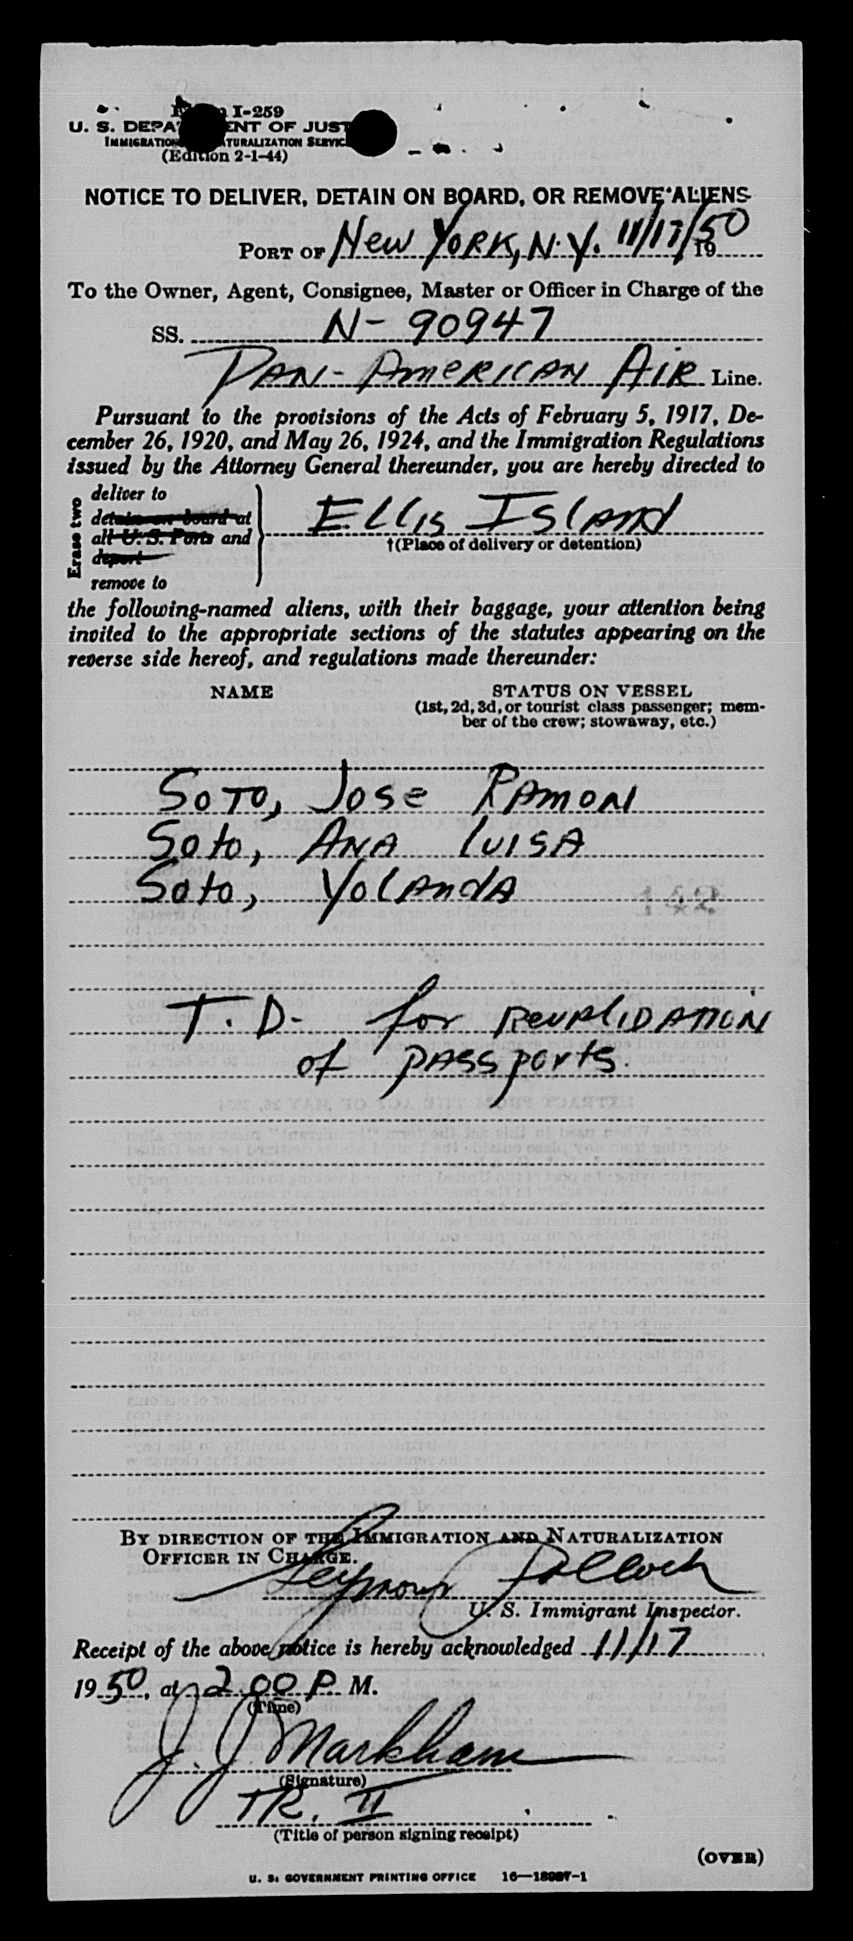 Form I-259
U. S. DEPARTMENT OF JUSTICE
IMMIGRATION NATURALIZATION SERVICE
(Edition 2-1-44)
NOTICE TO DELIVER, DETAIN ON BOARD, OR REMOVE ALIENS
PORT OF New YORK, N.Y. 11/17/50 19
To the Owner, Agent, Consignee, Master or Officer in Charge of the
SS. N-90947
PAN-AMERICAN AIR Line.
Pursuant to the provisions of the Acts of February 5, 1917, De-
cember 26, 1920, and May 26, 1924, and the Immigration Regulations
issued by the Attorney General thereunder, you are hereby directed to
Erase two
deliver to
detain on board at
all U. S. Ports and
deport
remove to
ELLIS ISLAND
†(Place of delivery or detention)
the following-named aliens, with their baggage, your attention being
invited to the appropriate sections of the statutes appearing on the
reverse side hereof, and regulations made thereunder:
NAME STATUS ON VESSEL
(1st, 2d, 3d, or tourist class passenger; mem-
ber of the crew; stowaway, etc.)
SOTO, Jose RAMON
Soto, ANA LUISA
Soto, YOLANDA
T.D- for REVALIDATION
of PASSports.
BY DIRECTION OF THE IMMIGRATION AND NATURALIZATION
OFFICER IN CHARGE.
Seymour Pollock
U. S. Immigrant Inspector.
Receipt of the above notice is hereby acknowledged 11/17
1950, at 2.00 P M.
(Time)
J. J. Markham
(Signature)
TR. II
(Title of person signing receipt)
(OVER)
U. S. GOVERNMENT PRINTING OFFICE 16—18987-1